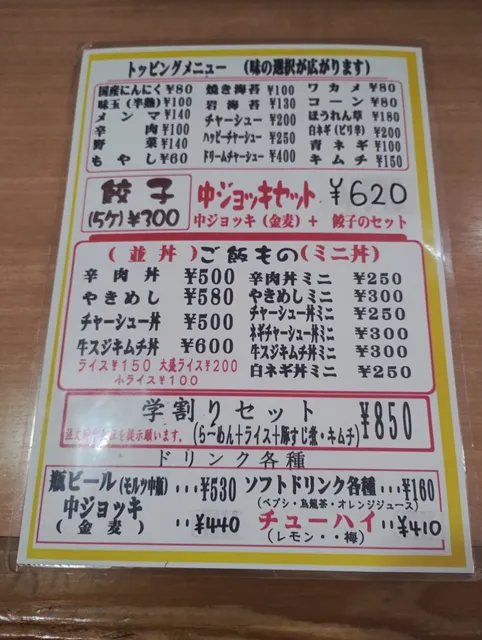 トッピングメニュー (味の選択が広がります)
国産にんにく ¥80 焼き海苔 ¥100 ワカメ ¥80
味玉(半熟) ¥100 岩海苔 ¥130 コーン ¥80
メンマ ¥140 チャーシュー ¥200 ほうれん草 ¥180
辛肉 ¥100 ハッピーチャーシュー ¥250 白ネギ(ピリ辛) ¥200
野菜 ¥140 ドリームチャーシュー ¥400 青ネギ ¥100
もやし ¥60 キムチ ¥150
餃子 中ジョッキセット ¥620
(5ケ) ¥300 中ジョッキ(金麦)+ 餃子のセット
(並丼)ご飯もの(ミニ丼)
辛肉丼 ¥500 辛肉丼ミニ ¥250
やきめし ¥580 やきめしミニ ¥300
チャーシュー丼 ¥500 チャーシュー丼ミニ ¥250
ネギチャーシュー丼ミニ ¥300
牛スジキムチ丼 ¥600 牛スジキムチ丼ミニ ¥300
ライス¥150 大盛ライス¥200 白ネギ丼ミニ ¥250
小ライス¥100
学割りセット ¥850
を提示願います。 (らーめん+ライス+豚すじ煮・キムチ)
ドリンク各種
瓶ビール(モルツ中瓶)・・・¥530 ソフトドリンク各種・・・¥160
(ペプシ・烏龍茶・オレンジジュース)
中ジョッキ ・・・¥440 チューハイ・・¥410
(金麦) (レモン・・梅)